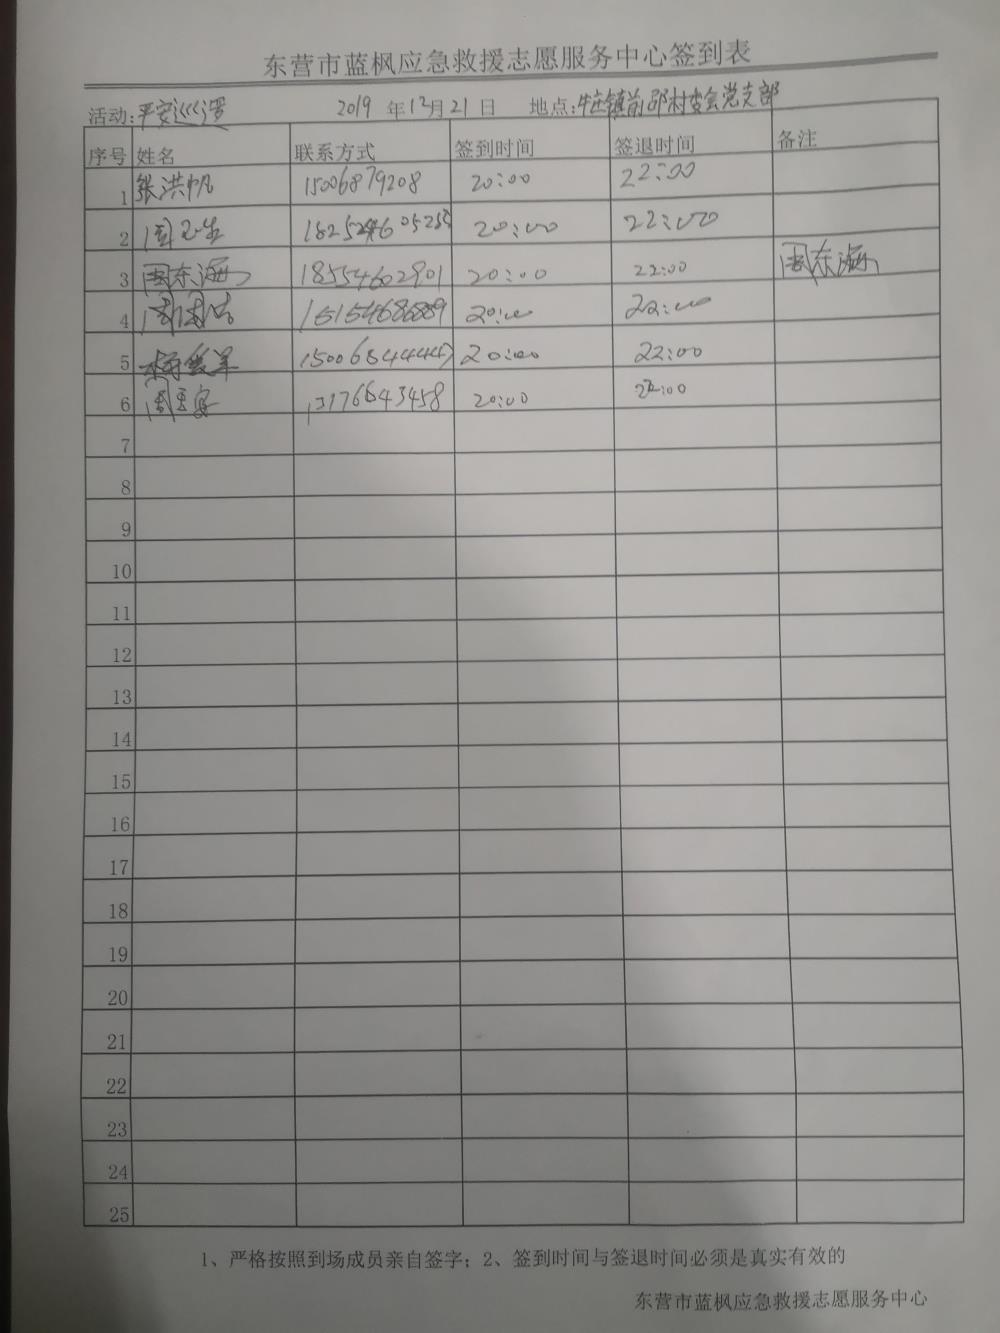 东营市蓝枫应急救援志愿服务中心签到表
活动:平安巡逻 2019 年12月21日 地点:牛庄镇前邵村委会党支部
序号 姓名 联系方式 签到时间 签退时间 备注
1 张洪帆 15006879208 20:00 22:00
2 周玉生 20:00 22:00
3 周东海 18554602901 20:00 22:00 周东海
4 15154686889 20:00 22:00
5 20:00 22:00
6 13176643458 20:00 22:00
7
8
9
10
11
12
13
14
15
16
17
18
19
20
21
22
23
24
25
1、严格按照到场成员亲自签字；2、签到时间与签退时间必须是真实有效的
东营市蓝枫应急救援志愿服务中心